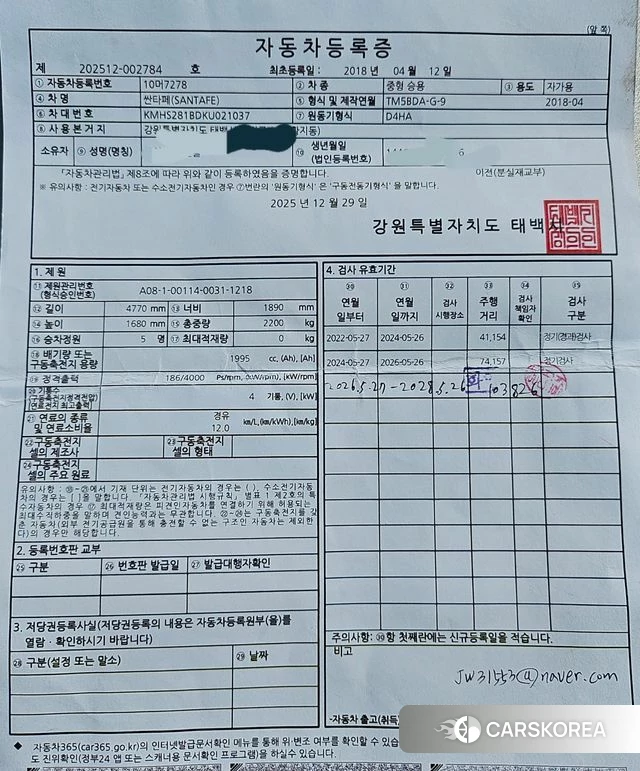 (앞 쪽)
자동차등록증
제 202512-002784 호 최초등록일 : 2018 년 04 월 12 일
① 자동차등록번호 10머7278 ② 차 종 중형 승용 ③ 용도 자가용
④ 차 명 싼타페(SANTAFE) ⑤ 형식 및 제작연월 TM5BDA-G-9 2018-04
⑥ 차 대 번 호 KMHS281BDKU021037 ⑦ 원동기형식 D4HA
⑧ 사 용 본 거 지 강원특별자치도 태백
소유자 ⑨ 성명(명칭) ⑩ 생년월일
(법인등록번호)
「자동차관리법」 제8조에 따라 위와 같이 등록하였음을 증명합니다. 이전(분실재교부)
※ 유의사항 : 전기자동차 또는 수소전기자동차인 경우 ⑦번란의 '원동기형식' 은 '구동전동기형식' 을 말합니다.
2025 년 12 월 29 일
강원특별자치도 태백시
1. 제 원
⑪ 제원관리번호
(형식승인번호) A08-1-00114-0031-1218
⑫ 길이 4770 mm ⑬ 너비 1890 mm
⑭ 높이 1680 mm ⑮ 총중량 2200 kg
⑯ 승차정원 5 명 ⑰ 최대적재량 0 kg
⑱ 배기량 또는
구동축전지 용량 1995 cc, (Ah), [Ah]
⑲ 정격출력 186/4000 Ps/rpm, (kW/rpm), [kW/rpm]
⑳ 기통수
(구동축전지정격전압)
[연료전지 최고출력] 4 기통, (V), [kW]
㉑ 연료의 종류
및 연료소비율 경유
12.0 km/L,(km/kWh),[km/kg]
㉒ 구동축전지
셀의 제조사 ㉓ 구동축전지
셀의 형태
㉔ 구동축전지
셀의 주요 원료
유의사항 : ⑱~㉕에서 기재 단위는 전기자동차의 경우는 ( ), 수소전기자동
차의 경우는 [ ]을 말합니다. 「자동차관리법 시행규칙」 별표 1 제2호의 특
수자동차의 경우 ⑰ 최대적재량은 피견인자동차를 연결하기 위해 허용되는
최대수직하중을 말하며 견인능력과는 무관합니다. ㉒~㉔는 구동축전지를 갖
춘 자동차(외부 전기공급원을 통해 충전할 수 없는 구조인 자동차는 제외한
다)의 경우만 해당합니다.
2. 등록번호판 교부
㉕ 구분 ㉖ 번호판 발급일 ㉗ 발급대행자확인
3. 저당권등록사실(저당권등록의 내용은 자동차등록원부(을)를
열람ㆍ확인하시기 바랍니다)
㉘ 구분(설정 또는 말소) ㉙ 날짜
4. 검사 유효기간
㉚ 연월일부터 ㉛ 연월일까지 ㉜ 검사시행장소 ㉝ 주행거리 ㉞ 검사책임자확인 ㉟ 검사구분
2022-05-27 2024-05-26 41,154 정기(경과)검사
2024-05-27 2026-05-26 74,157 정기검사
2026.5.27 - 2028.5.26 103826
주의사항: ㉚항 첫째란에는 신규등록일을 적습니다.
비고
JW31553@naver.com
-자동차 출고(취득)
CARSKOREA
◆ 자동차365(car365.go.kr)의 인터넷발급문서확인 메뉴를 통해 위·변조 여부를 확인할 수 있
도 진위확인(정부24 앱 또는 스캐너용 문서확인 프로그램)을 하실수 있습니다.